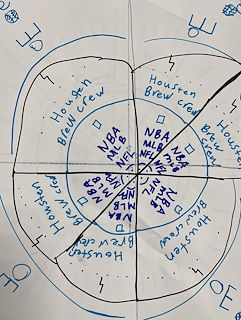 Housten
Brew crew
NBA
MLB
NFL
Housten
Brew crew
NBA
MLB
NFL
Housten
Brew crew
NBA
MLB
NFL
Housten
Brew crew
NBA
MLB
NFL
Housten
Brew crew
NBA
MLB
NFL
Housten
Brew crew
NBA
MLB
NFL